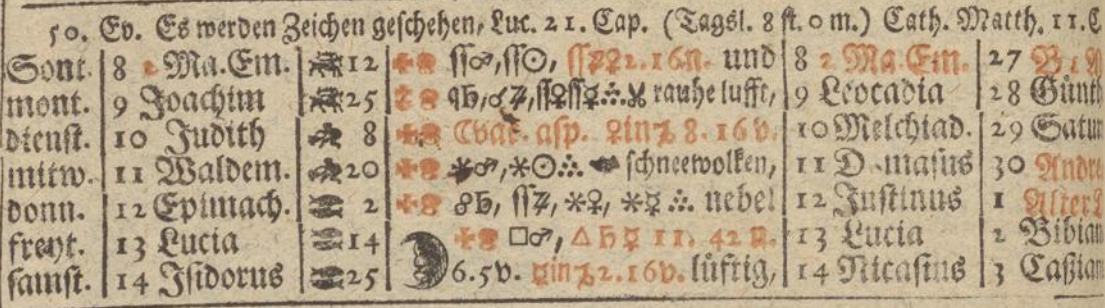 50. Ev. Es werden Zeichen geschehen, Luc. 21. Cap. (Tagsl. 8 st. 0 m.) Cath. Matth. 11. C
Sont. 8 2 Ma. Em. 12 ☌♂, ☌☉, 2. 16 n. und 8 2 Ma. Em. 27
mont. 9 Joachim 25 rauhe lufft, 9 Leocadia 28 Günth
dienst. 10 Judith 8 Qvat. asp. ♀ in ♑ 8. 16 v. 10 Melchiad. 29 Satur
mitw. 11 Waldem. 20 ⚹♂, ⚹☉ ∴ schneewolken, 11 D masus 30 Andre
donn. 12 Epimach. 2 ☍♄, ⚹♀, ⚹☿ ∴ nebel 12 Justinus 1 Alter
freyt. 13 Lucia 14 □♂, △♄☿ 11. 42 n. 13 Lucia 2 Bibian
samst. 14 Isidorus 25 6. 5 v. ☿ in ♑ 2. 16 v. lüftig, 14 Nicasius 3 Caßian